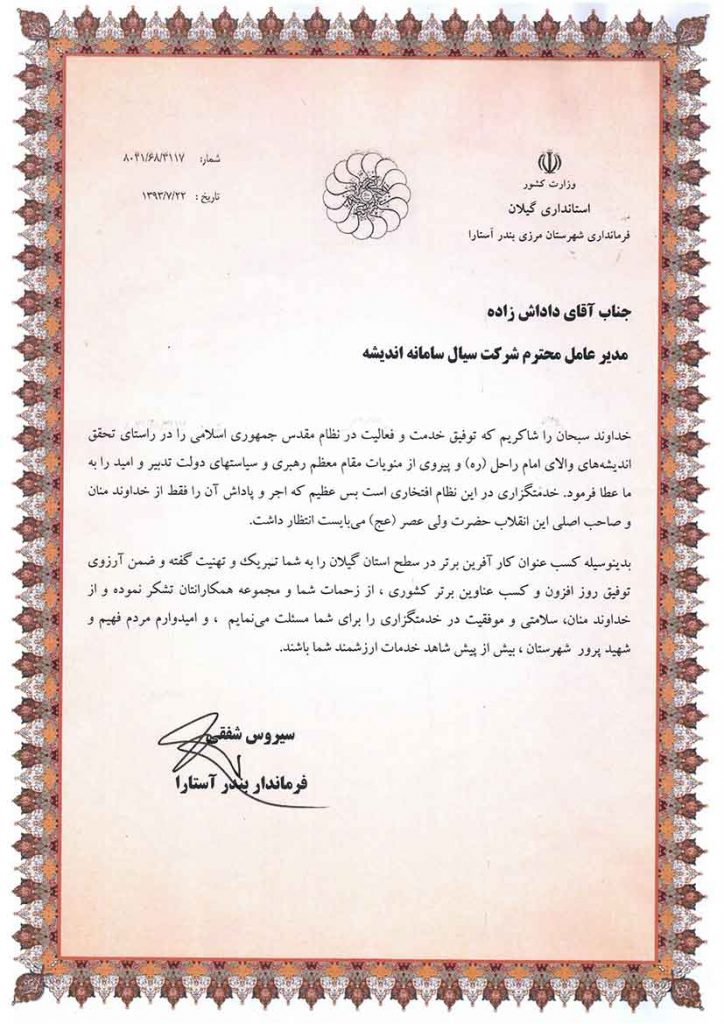 شماره: ۸۰۴۱/۶۸/۴۱۱۷
تاریخ: ۱۳۹۳/۷/۲۲
وزارت کشور
استانداری گیلان
فرمانداری شهرستان مرزی بندر آستارا
جناب آقای داداش زاده
مدیر عامل محترم شرکت سیال سامانه اندیشه
خداوند سبحان را شاکریم که توفیق خدمت و فعالیت در نظام مقدس جمهوری اسلامی را در راستای تحقق
اندیشه‌های والای امام راحل (ره) و پیروی از منویات مقام معظم رهبری و سیاستهای دولت تدبیر و امید را به
ما عطا فرمود. خدمتگزاری در این نظام افتخاری است بس عظیم که اجر و پاداش آن را فقط از خداوند منان
و صاحب اصلی این انقلاب حضرت ولی عصر (عج) می‌بایست انتظار داشت.
بدینوسیله کسب عنوان کار آفرین برتر در سطح استان گیلان را به شما تبریک و تهنیت گفته و ضمن آرزوی
توفیق روز افزون و کسب عناوین برتر کشوری ، از زحمات شما و مجموعه همکارانتان تشکر نموده و از
خداوند منان، سلامتی و موفقیت در خدمتگزاری را برای شما مسئلت می‌نمایم ، و امیدوارم مردم فهیم و
شهید پرور شهرستان ، بیش از پیش شاهد خدمات ارزشمند شما باشند.
سیروس شفقی
فرماندار بندر آستارا